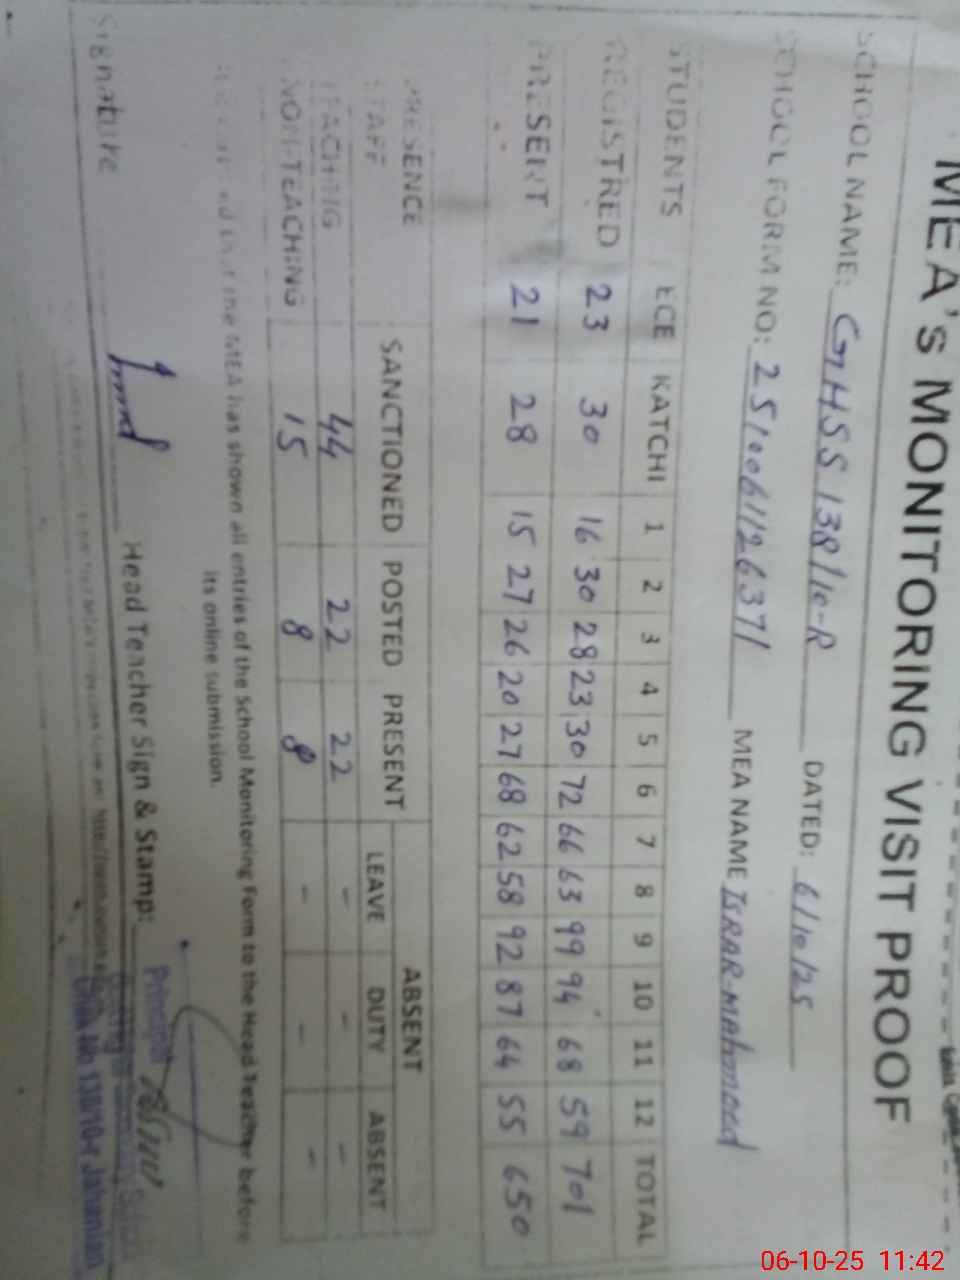 MEA's MONITORING VISIT PROOF
SCHOOL NAME: GHSS 138/10-R DATED: 6/10/25
SCHOOL FORM NO: 2510061126371 MEA NAME ISRAR-MAHMOOD
STUDENTS ECE KATCHI 1 2 3 4 5 6 7 8 9 10 11 12 TOTAL
REGISTRED 23 30 16 30 28 23 30 72 66 63 99 94 68 59 701
PRESENT 21 28 15 27 26 20 27 68 62 58 92 87 64 55 650
PRESENCE SANCTIONED POSTED PRESENT ABSENT
STAFF LEAVE DUTY ABSENT
TEACHING 44 22 22 - - -
NON-TEACHING 15 8 8 - - -
the MEA has shown all entries of the School Monitoring Form to the Head Teacher before
its online submission.
Signature Head Teacher Sign & Stamp:
Principal
Chak No 138/10-r Jahanian
06-10-25 11:42